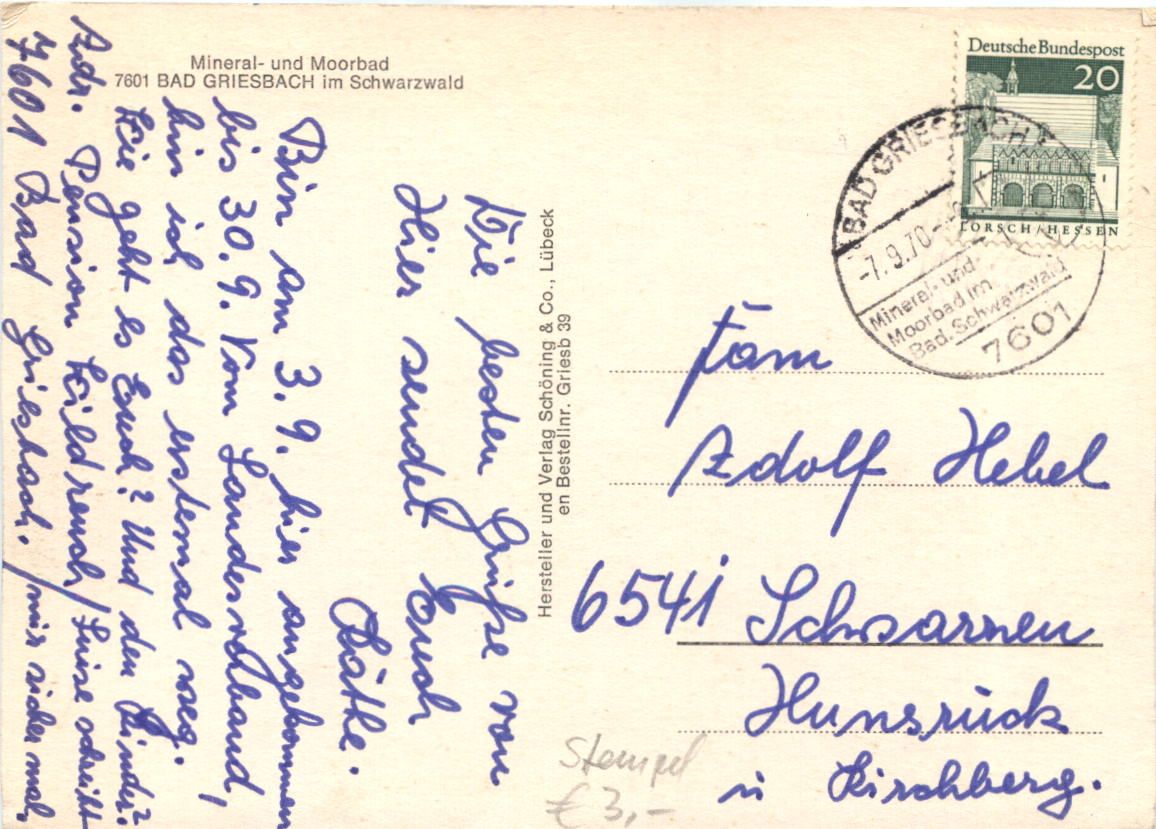 Mineral- und Moorbad
7601 BAD GRIESBACH im Schwarzwald
Die besten Grüße von
Hier sendet Euch
Käthe.
Bin am 3.9. hier angekommen
bis 30.9. Vom Landesverband,
bin ich das erstemal weg.
Wie geht es Euch? Und den Kinder?
Adr. Pension Wildrench / Luise schreibt
7601 Bad Griesbach. / mir sicher mal,
Hersteller und Verlag Schöning & Co., Lübeck
en Bestellnr. Griesb 39
Deutsche Bundespost
20
LORSCH/HESSEN
BAD GRIESBACH
-7.9.70-
Mineral- und
Moorbad im
Bad. Schwarzwald
7601
Fam
Adolf Hebel
6541 Schwarzen
Hunsrück
ü Kirchberg.
Stempel
€ 3,-